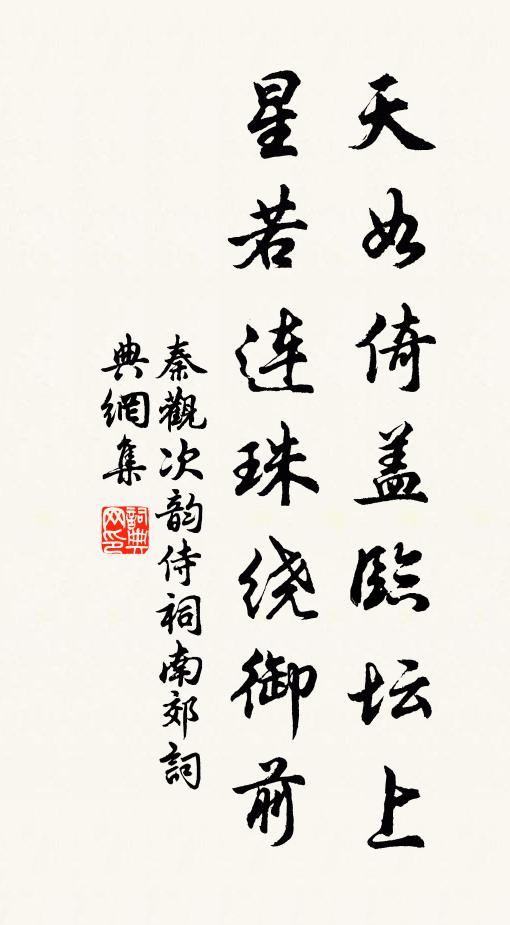 天如倚盖临坛上
星若连珠绕御前
秦觀次韵侍祠南郊詞
典網集
詞典
网印